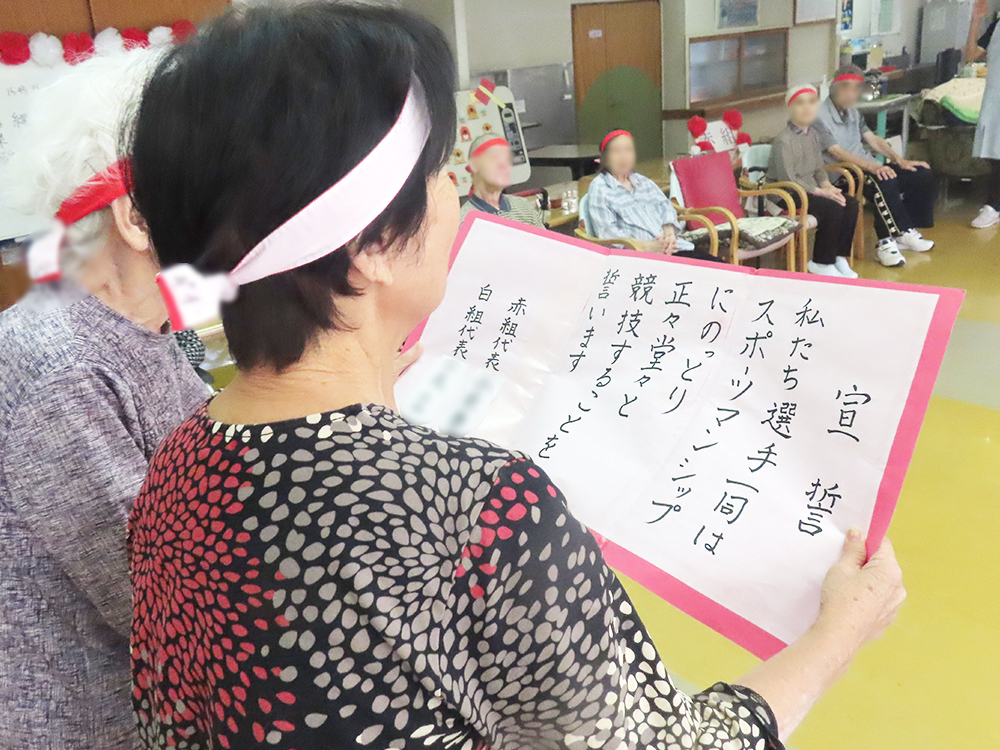 宣誓
私たち選手一同は
スポーツマンシップ
にのっとり
正々堂々と
競技することを
誓います
赤組代表
白組代表
赤組